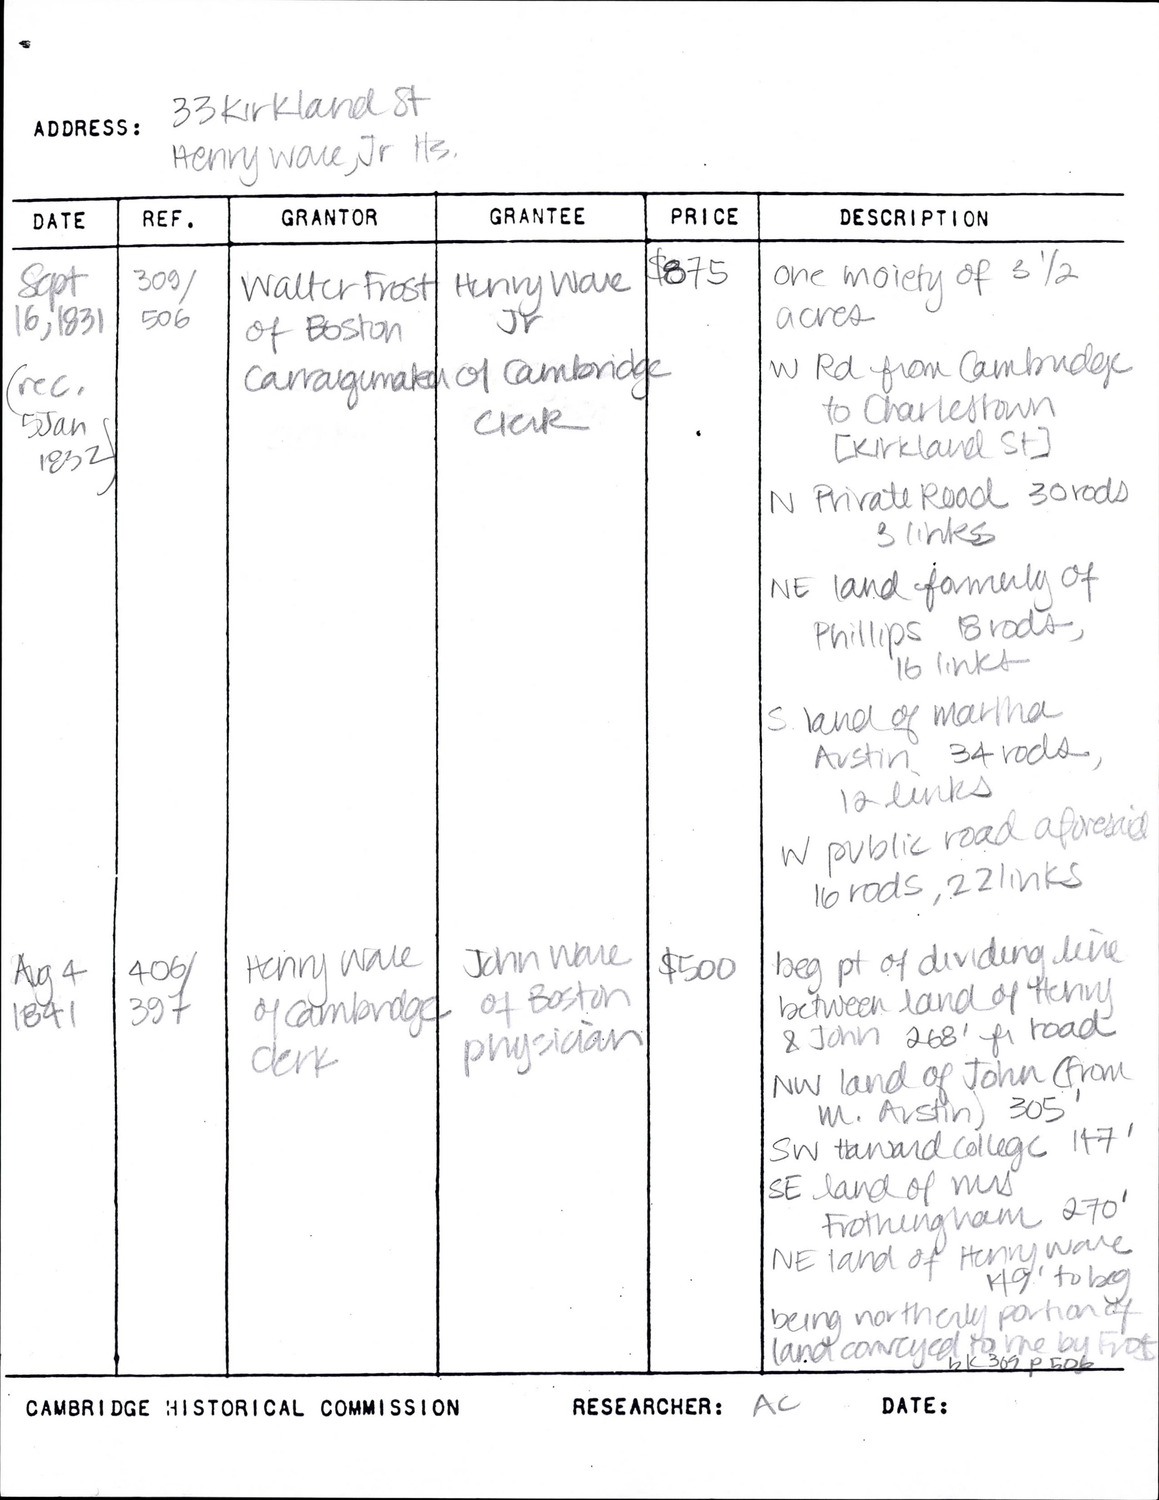 ADDRESS: 33 Kirkland St
Henry Ware, Jr Hs.
DATE REF. GRANTOR GRANTEE PRICE DESCRIPTION
Sept
16, 1831
(rec.
5 Jan
1832)
309/
506
Walter Frost
of Boston
Carraigemaker
Henry Ware
Jr
of Cambridge
Clerk
$875
one moiety of 3 1/2
acres
W Rd from Cambridge
to Charlestown
[Kirkland St]
N Private Road 30 rods
3 links
NE land formerly of
Phillips 18 rods,
16 links
S land of Martha
Austin 34 rods,
12 links
W public road aforesaid
16 rods, 22 links
Aug 4
1841
406/
397
Henry Ware
of Cambridge
Clerk
John Ware
of Boston
physician
$500
beg pt of dividing line
between land of Henry
& John 268' fr road
NW land of John (from
M. Austin) 305'
SW Harvard College 147'
SE land of Mrs
Frothingham 270'
NE land of Henry Ware
149' to beg
being northerly portion of
land conveyed to me by Frost
bk 309 p 506
CAMBRIDGE HISTORICAL COMMISSION RESEARCHER: AC DATE: